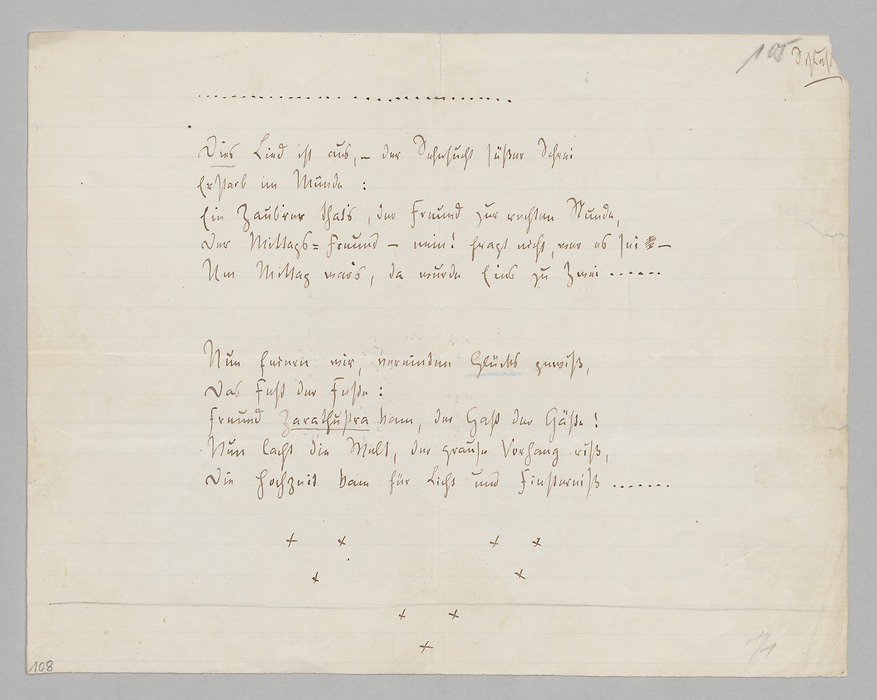 105
Dies Lied ist aus, – der Sehnsucht süßer Schrei
Erstarb im Munde :
Ein Zaubrer that's, der Freund zur rechten Stunde,
Der Mittags=Freund – nein! fragt nicht, wer es sei –
Um Mittag war's, da wurde Eins zu Zwei ......
Nun feiern wir, vereinten Glücks gewiß,
Das Fest der Feste :
Freund Zarathustra kam, der Gast der Gäste !
Nun lacht die Welt, der grause Vorhang riß,
Die Hochzeit kam für Licht und Finsterniß .......
108